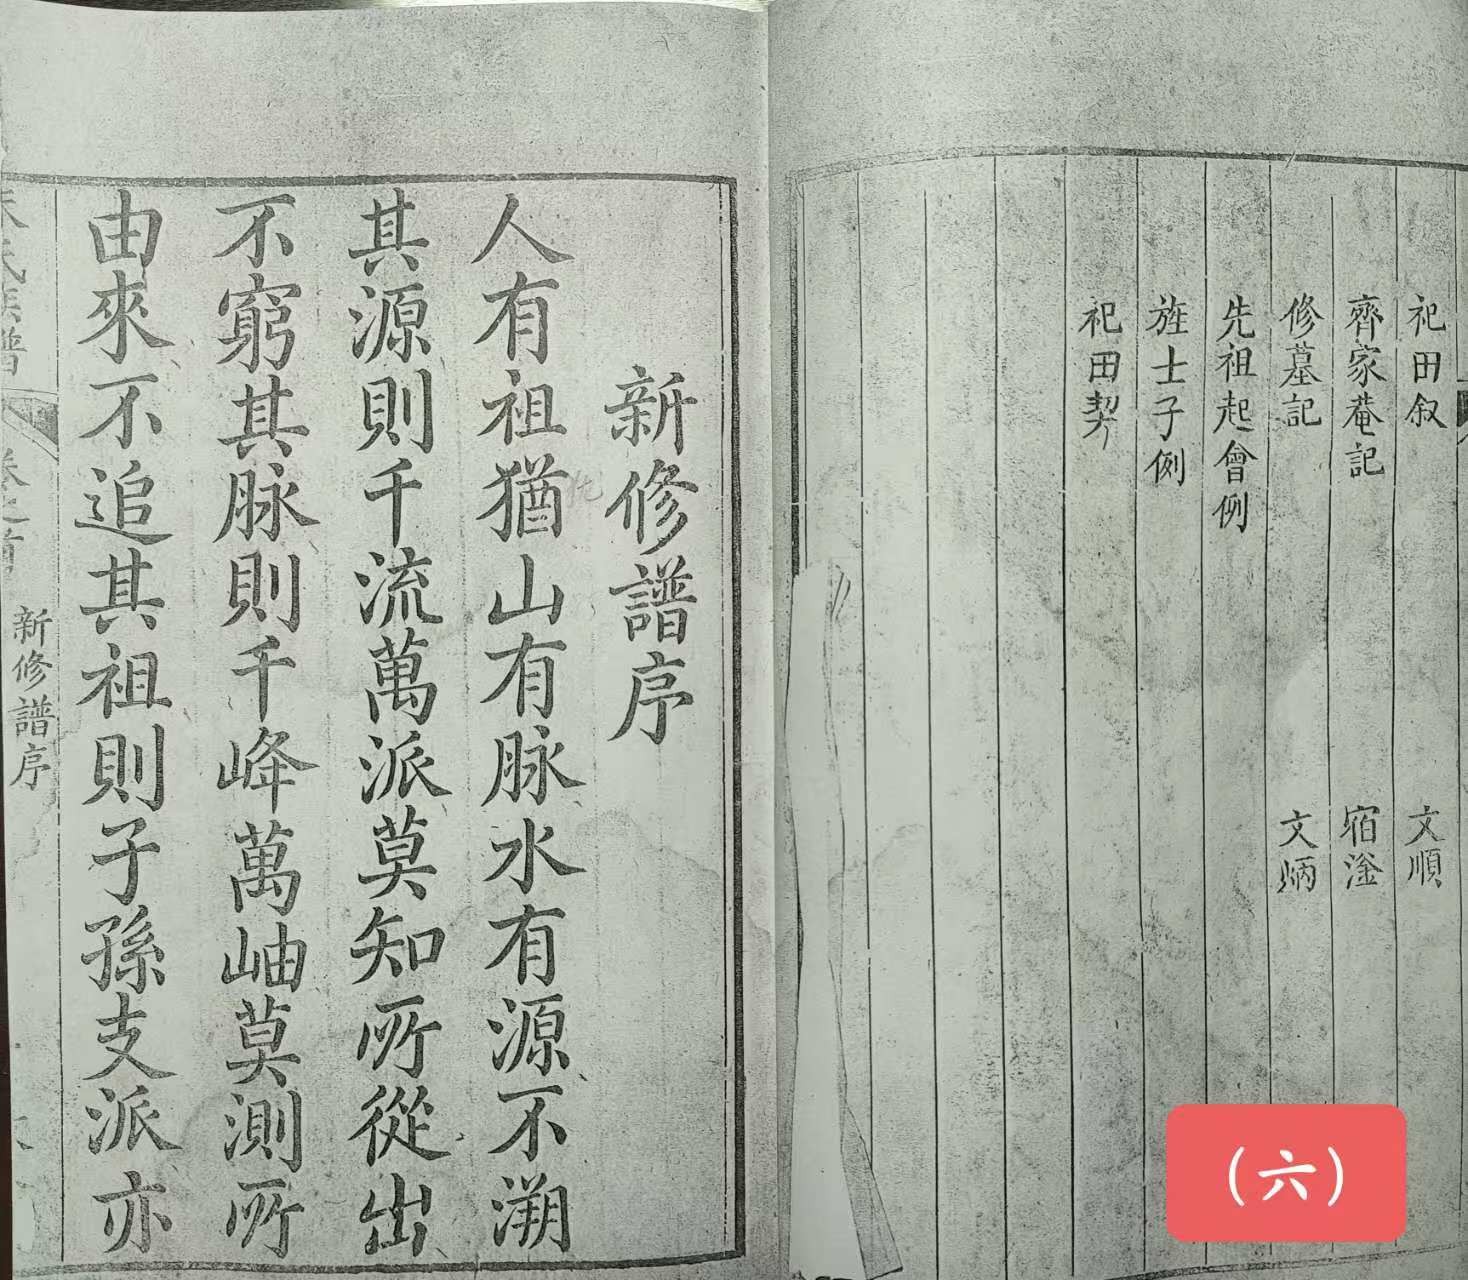 祀田叙 文順
齊家菴記 宿淦
修墓記 文炳
先祖起會例
旌士子例
祀田契
新修譜序
人有祖猶山有脉水有源不溯
其源則千流萬派莫知所從出
不窮其脉則千峰萬岫莫測所
由來不追其祖則子孫支派亦
氏族譜
卷之首
新修譜序
(六)